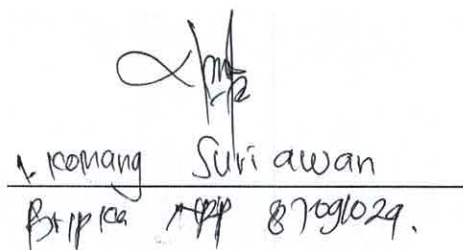 I. Komang Suriawan
Bripka NRP 87091029.